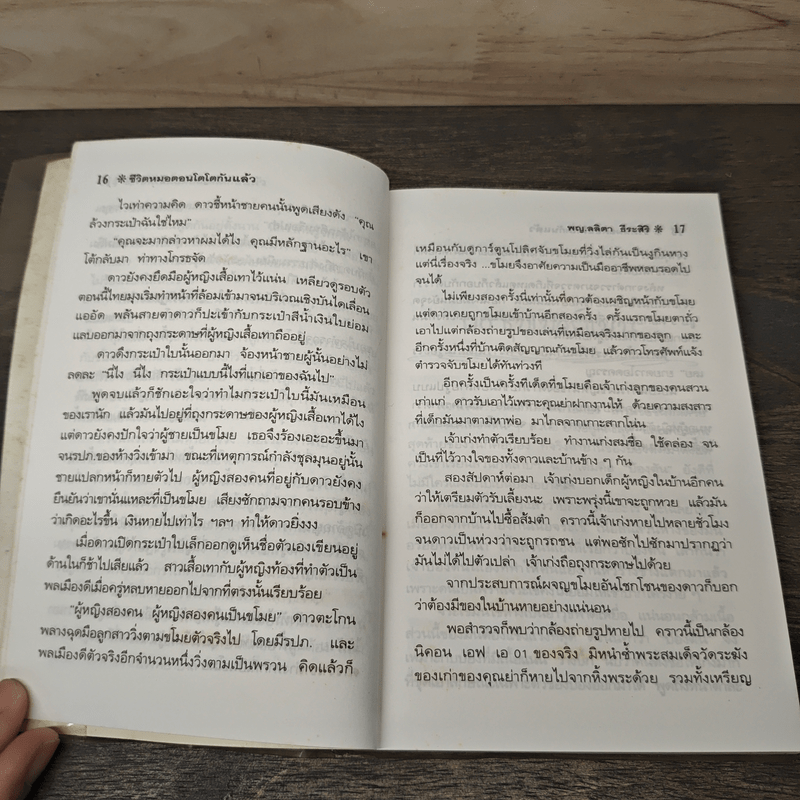 16 ✻ ชีวิตหมอตอนโตโตกันแล้ว
ไวเท่าความคิด ดาวชี้หน้าชายคนนั้นพูดเสียงดัง "คุณ
ล้วงกระเป๋าฉันใช่ไหม"
"คุณจะมากล่าวหาผมได้ไง คุณมีหลักฐานอะไร" เขา
โต้กลับมา ท่าทางโกรธจัด
ดาวยังคงยึดมือผู้หญิงเสื้อเทาไว้แน่น เหลียวดูรอบตัว
ตอนนี้ไทยมุงเริ่มทำหน้าที่ล้อมเข้ามาจนบริเวณเชิงบันไดเลื่อน
แออัด พลันสายตาดาวก็ปะเข้ากับกระเป๋าสีน้ำเงินใบย่อม
แลบออกมาจากถุงกระดาษที่ผู้หญิงเสื้อเทาถืออยู่
ดาวดึงกระเป๋าใบนั้นออกมา จ้องหน้าชายผู้นั้นอย่างไม่
ลดละ "นี่ไง นี่ไง กระเป๋าแบบนี้ไงที่แกเอาของฉันไป"
พูดจบแล้วก็ชักเอะใจว่าทำไมกระเป๋าใบนี้มันเหมือน
ของเรานัก แล้วมันไปอยู่ที่ถุงกระดาษของผู้หญิงเสื้อเทาได้ไง
แต่ดาวยังคงปักใจว่าผู้ชายเป็นขโมย เธอจึงร้องเอะอะขึ้นมา
จนรปภ.ของห้างวิ่งเข้ามา ขณะที่เหตุการณ์กำลังชุลมุนอยู่นั้น
ชายแปลกหน้าก็หายตัวไป ผู้หญิงสองคนที่อยู่กับดาวยังคง
ยืนยันว่าเขานั่นแหละที่เป็นขโมย เสียงซักถามจากคนรอบข้าง
ว่าเกิดอะไรขึ้น เงินหายไปเท่าไร ฯลฯ ทำให้ดาวยิ่งงง
เมื่อดาวเปิดกระเป๋าใบเล็กออกดูเห็นชื่อตัวเองเขียนอยู่
ด้านในก็ช้าไปเสียแล้ว สาวเสื้อเทากับผู้หญิงท้องที่ทำตัวเป็น
พลเมืองดีเมื่อครู่หลบหายออกไปจากที่ตรงนั้นเรียบร้อย
"ผู้หญิงสองคน ผู้หญิงสองคนเป็นขโมย" ดาวตะโกน
พลางฉุดมือลูกสาววิ่งตามขโมยตัวจริงไป โดยมีรปภ. และ
พลเมืองดีตัวจริงอีกจำนวนหนึ่งวิ่งตามเป็นพรวน คิดแล้วก็
พญ.ลลิตา ธีระสิริ ✻ 17
เหมือนกับดูการ์ตูนโปลิศจับขโมยที่วิ่งไล่กันเป็นงูกินหาง
แต่นี่เรื่องจริง ...ขโมยจึงอาศัยความเป็นมืออาชีพหลบรอดไป
จนได้
ไม่เพียงสองครั้งนี้เท่านั้นที่ดาวต้องเผชิญหน้ากับขโมย
แต่ดาวเคยถูกขโมยเข้าบ้านอีกสองครั้ง ครั้งแรกขโมยตาถั่ว
เอาไปแต่กล้องถ่ายรูปของเล่นที่เหมือนจริงมากของลูก และ
อีกครั้งหนึ่งที่บ้านติดสัญญาณกันขโมย แล้วดาวโทรศัพท์แจ้ง
ตำรวจจับขโมยได้ทันท่วงที
อีกครั้งเป็นครั้งที่เด็ดที่ขโมยคือเจ้าเก่งลูกของคนสวน
เก่าแก่ ดาวรับเอาไว้เพราะคุณย่าฝากงานให้ ด้วยความสงสาร
ที่เด็กมันมาตามหาพ่อ มาไกลจากเกาะสากโน่น
เจ้าเก่งทำตัวเรียบร้อย ทำงานเก่งสมชื่อ ใช้คล่อง จน
เป็นที่ไว้วางใจของทั้งดาวและบ้านข้าง ๆ กัน
สองสัปดาห์ต่อมา เจ้าเก่งบอกเด็กผู้หญิงในบ้านอีกคน
ว่าให้เตรียมตัวรับเลี้ยงนะ เพราะพรุ่งนี้เขาจะถูกหวย แล้วมัน
ก็ออกจากบ้านไปซื้อส้มตำ คราวนี้เจ้าเก่งหายไปหลายชั่วโมง
จนดาวเป็นห่วงว่าจะถูกรถชน แต่พอซักไปซักมาปรากฏว่า
มันไม่ได้ไปตัวเปล่า เจ้าเก่งถือถุงกระดาษไปด้วย
จากประสบการณ์ผจญขโมยอันโชกโชนของดาวก็บอก
ว่าต้องมีของในบ้านหายอย่างแน่นอน
พอสำรวจก็พบว่ากล้องถ่ายรูปหายไป คราวนี้เป็นกล้อง
นิคอน เอฟ เอ 01 ของจริง มิหนำซ้ำพระสมเด็จวัดระฆัง
ของเก่าของคุณย่าก็หายไปจากหิ้งพระด้วย รวมทั้งเหรียญ